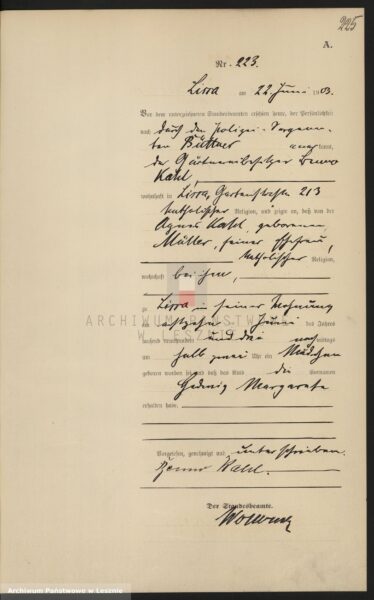 225
A.
Nr. 223.
Lissa am 22. Juni 1903.
Vor dem unterzeichneten Standesbeamten erschien heute, der Persönlichkeit
nach durch den Polizei-Sergean-
ten Büttner aner kannt,
der Gärtnereibesitzer Benno
Wahl,
wohnhaft in Lissa, Gartenstraße 213
katholischer Religion, und zeigte an, daß von der
Agnes Wahl, geborenen
Müller, seiner Ehefrau,
katholischer Religion,
wohnhaft bei ihm,
zu Lissa in seiner Wohnung
am achtzehnten Juni des Jahres
tausend neunhundert und drei nachmittags
um halb zwei Uhr ein Mädchen
geboren worden sei und daß das Kind die Vornamen
Hedwig Margarete
erhalten habe.
Vorgelesen, genehmigt und unterschrieben.
Benno Wahl.
Der Standesbeamte.
ARCHIWUM PAŃSTWOWE
W LESZNIE
Archiwum Państwowe w Lesznie